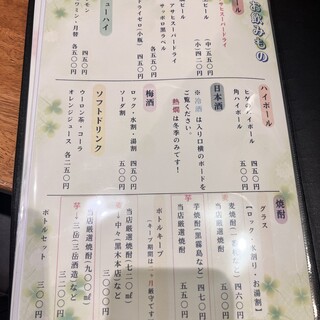 お飲みもの
ビール
アサヒスーパードライ
(中)五五〇円
(小)四二〇円
サッポロ黒ラベル
アサヒスーパードライ
各五五〇円
ドライゼロ(小瓶)
四五〇円
四五〇円
各五〇〇円
ハイボール
ヒゲのハイボール
四五〇円
角ハイボール
五五〇円
日本酒
※冷酒は入り口横のボードを
ご覧ください。
熱燗は冬季のみです!
梅酒
ロック・水割・湯割
四五〇円
ソーダ割
五〇〇円
ソフトドリンク
ウーロン・コーラ
オレンジジュース
各二五〇円
焼酎
グラス
【ロック・水割り・お湯割】
四六〇円
当店厳選焼酎
五五〇円
芋焼酎(黒霧島など)
四七〇円
当店厳選焼酎
五五〇円
ボトルキープ
(キープ期間は ヶ月厳守です)
麦 中々(黒木本店)など
当店厳選焼酎(七二〇㎖)
三一〇〇円
芋 三岳(三岳酒造)など
当店厳選焼酎(九〇〇㎖)
三二〇〇円
ボトルセット
三〇〇円